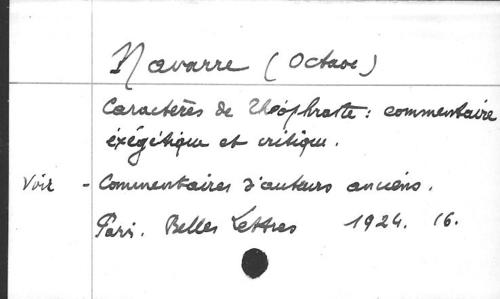 Navarre (Octave)
Caractères de Théophraste : commentaire
éxégétique et critique.
Voir - Commentaires d'auteurs anciens.
Paris. Belles Lettres 1924. 16.